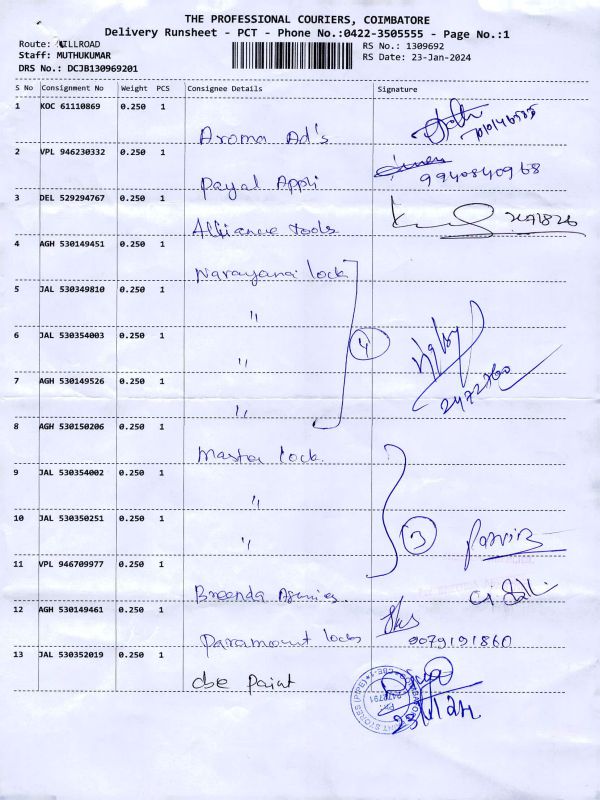 THE PROFESSIONAL COURIERS, COIMBATORE
Delivery Runsheet - PCT - Phone No.:0422-3505555 - Page No.:1
Route: MILLROAD
Staff: MUTHUKUMAR
DRS No.: DCJB130969201
RS No.: 1309692
RS Date: 23-Jan-2024
S No Consignment No Weight PCS Consignee Details Signature
1 KOC 61110869 0.250 1 Aroma Ad's
2 VPL 946230332 0.250 1 Payal Appli 9940840968
3 DEL 529294767 0.250 1 Alliance tools
4 AGH 530149451 0.250 1 Narayana lock
5 JAL 530349810 0.250 1 "
6 JAL 530354003 0.250 1 " 4
7 AGH 530149526 0.250 1 " 2472760
8 AGH 530150206 0.250 1 Master lock
9 JAL 530354002 0.250 1 "
10 JAL 530350251 0.250 1 " 3
11 VPL 946709977 0.250 1 Breenda
12 AGH 530149461 0.250 1 Paramount locks 9079191860
13 JAL 530352019 0.250 1 cbe Paint 23/1/24